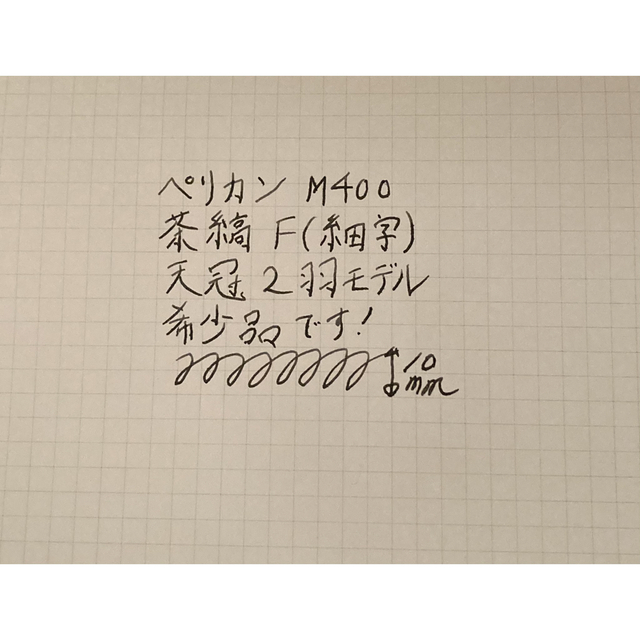 ペリカン M400
茶縞 F(細字)
天冠 2羽モデル
希少品です!
10mm